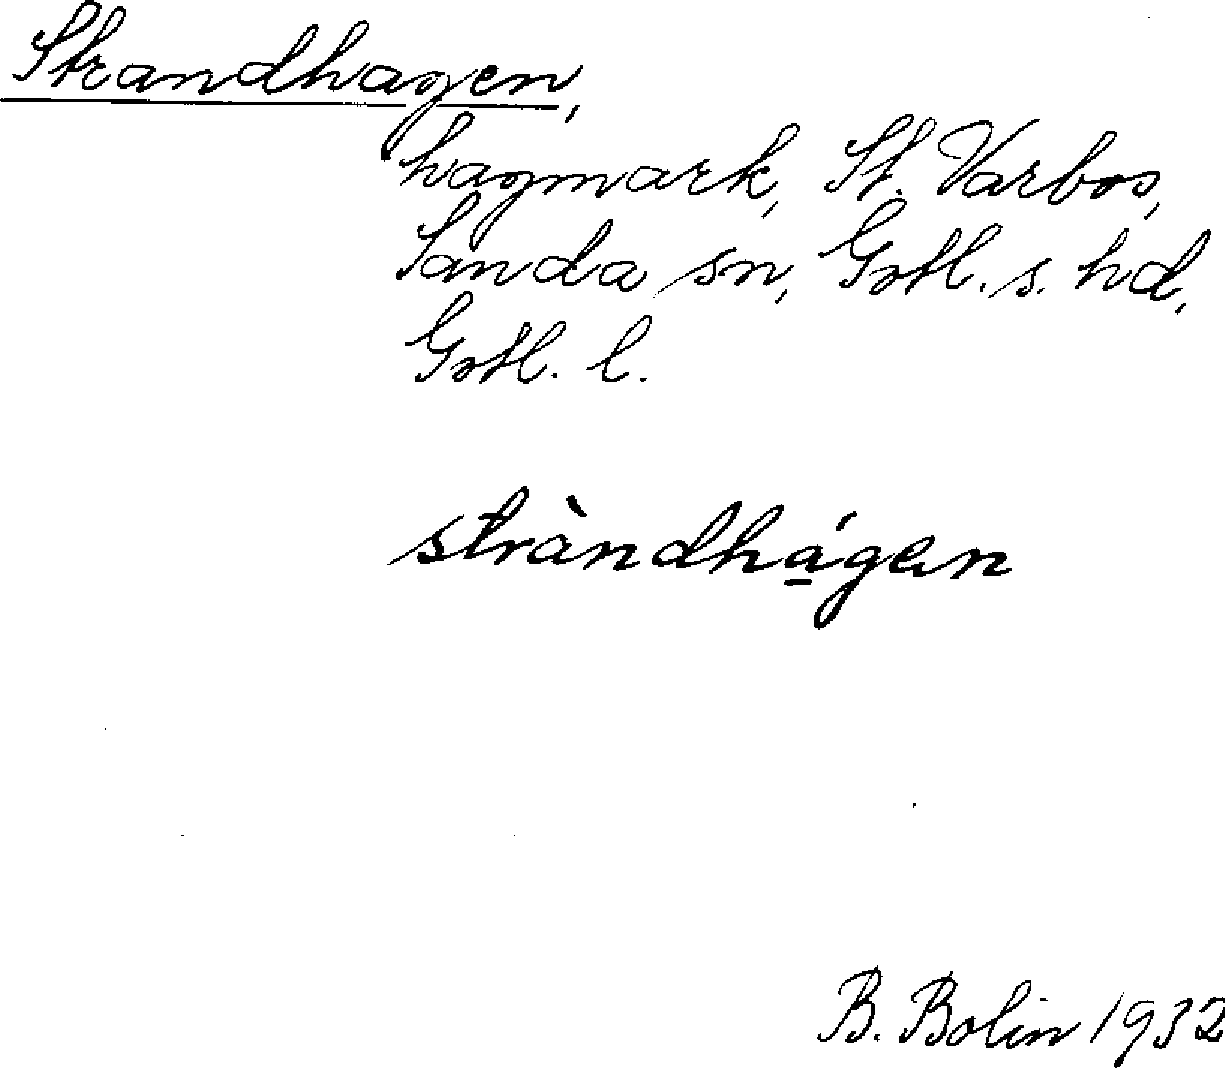 Strandhagen,
hagmark, St. Varbos,
Sanda sn, Gotl. s. hd,
Gotl. l.
stràndhá̱gen
B. Bolin 1932